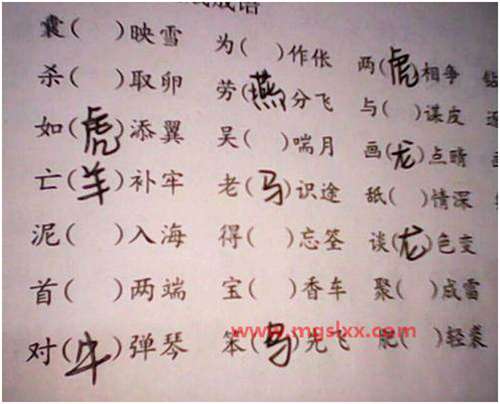 成语
囊( )映雪 为( )作伥 两(虎)相争
杀( )取卵 劳(燕)分飞 与( )谋皮
如(虎)添翼 吴( )喘月 画(龙)点睛
亡(羊)补牢 老(马)识途 舐( )情深
泥( )入海 得( )忘筌 谈(龙)色变
首( )两端 宝( )香车 聚( )成雷
对(牛)弹琴 笨(鸟)先飞 肥( )轻裘
www.mgslxx.com